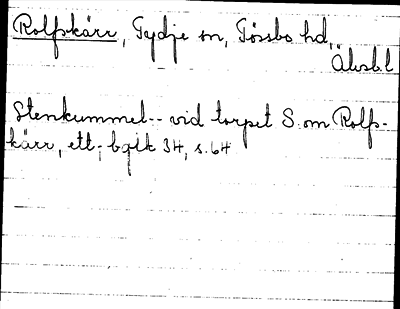 Rolfskärr, Tydje sn, Tössbo hd,
Älvsb.l
Stenkummel-- vid torpet S.om Rolfs-
kärr, ett; bgltk 34, s.64